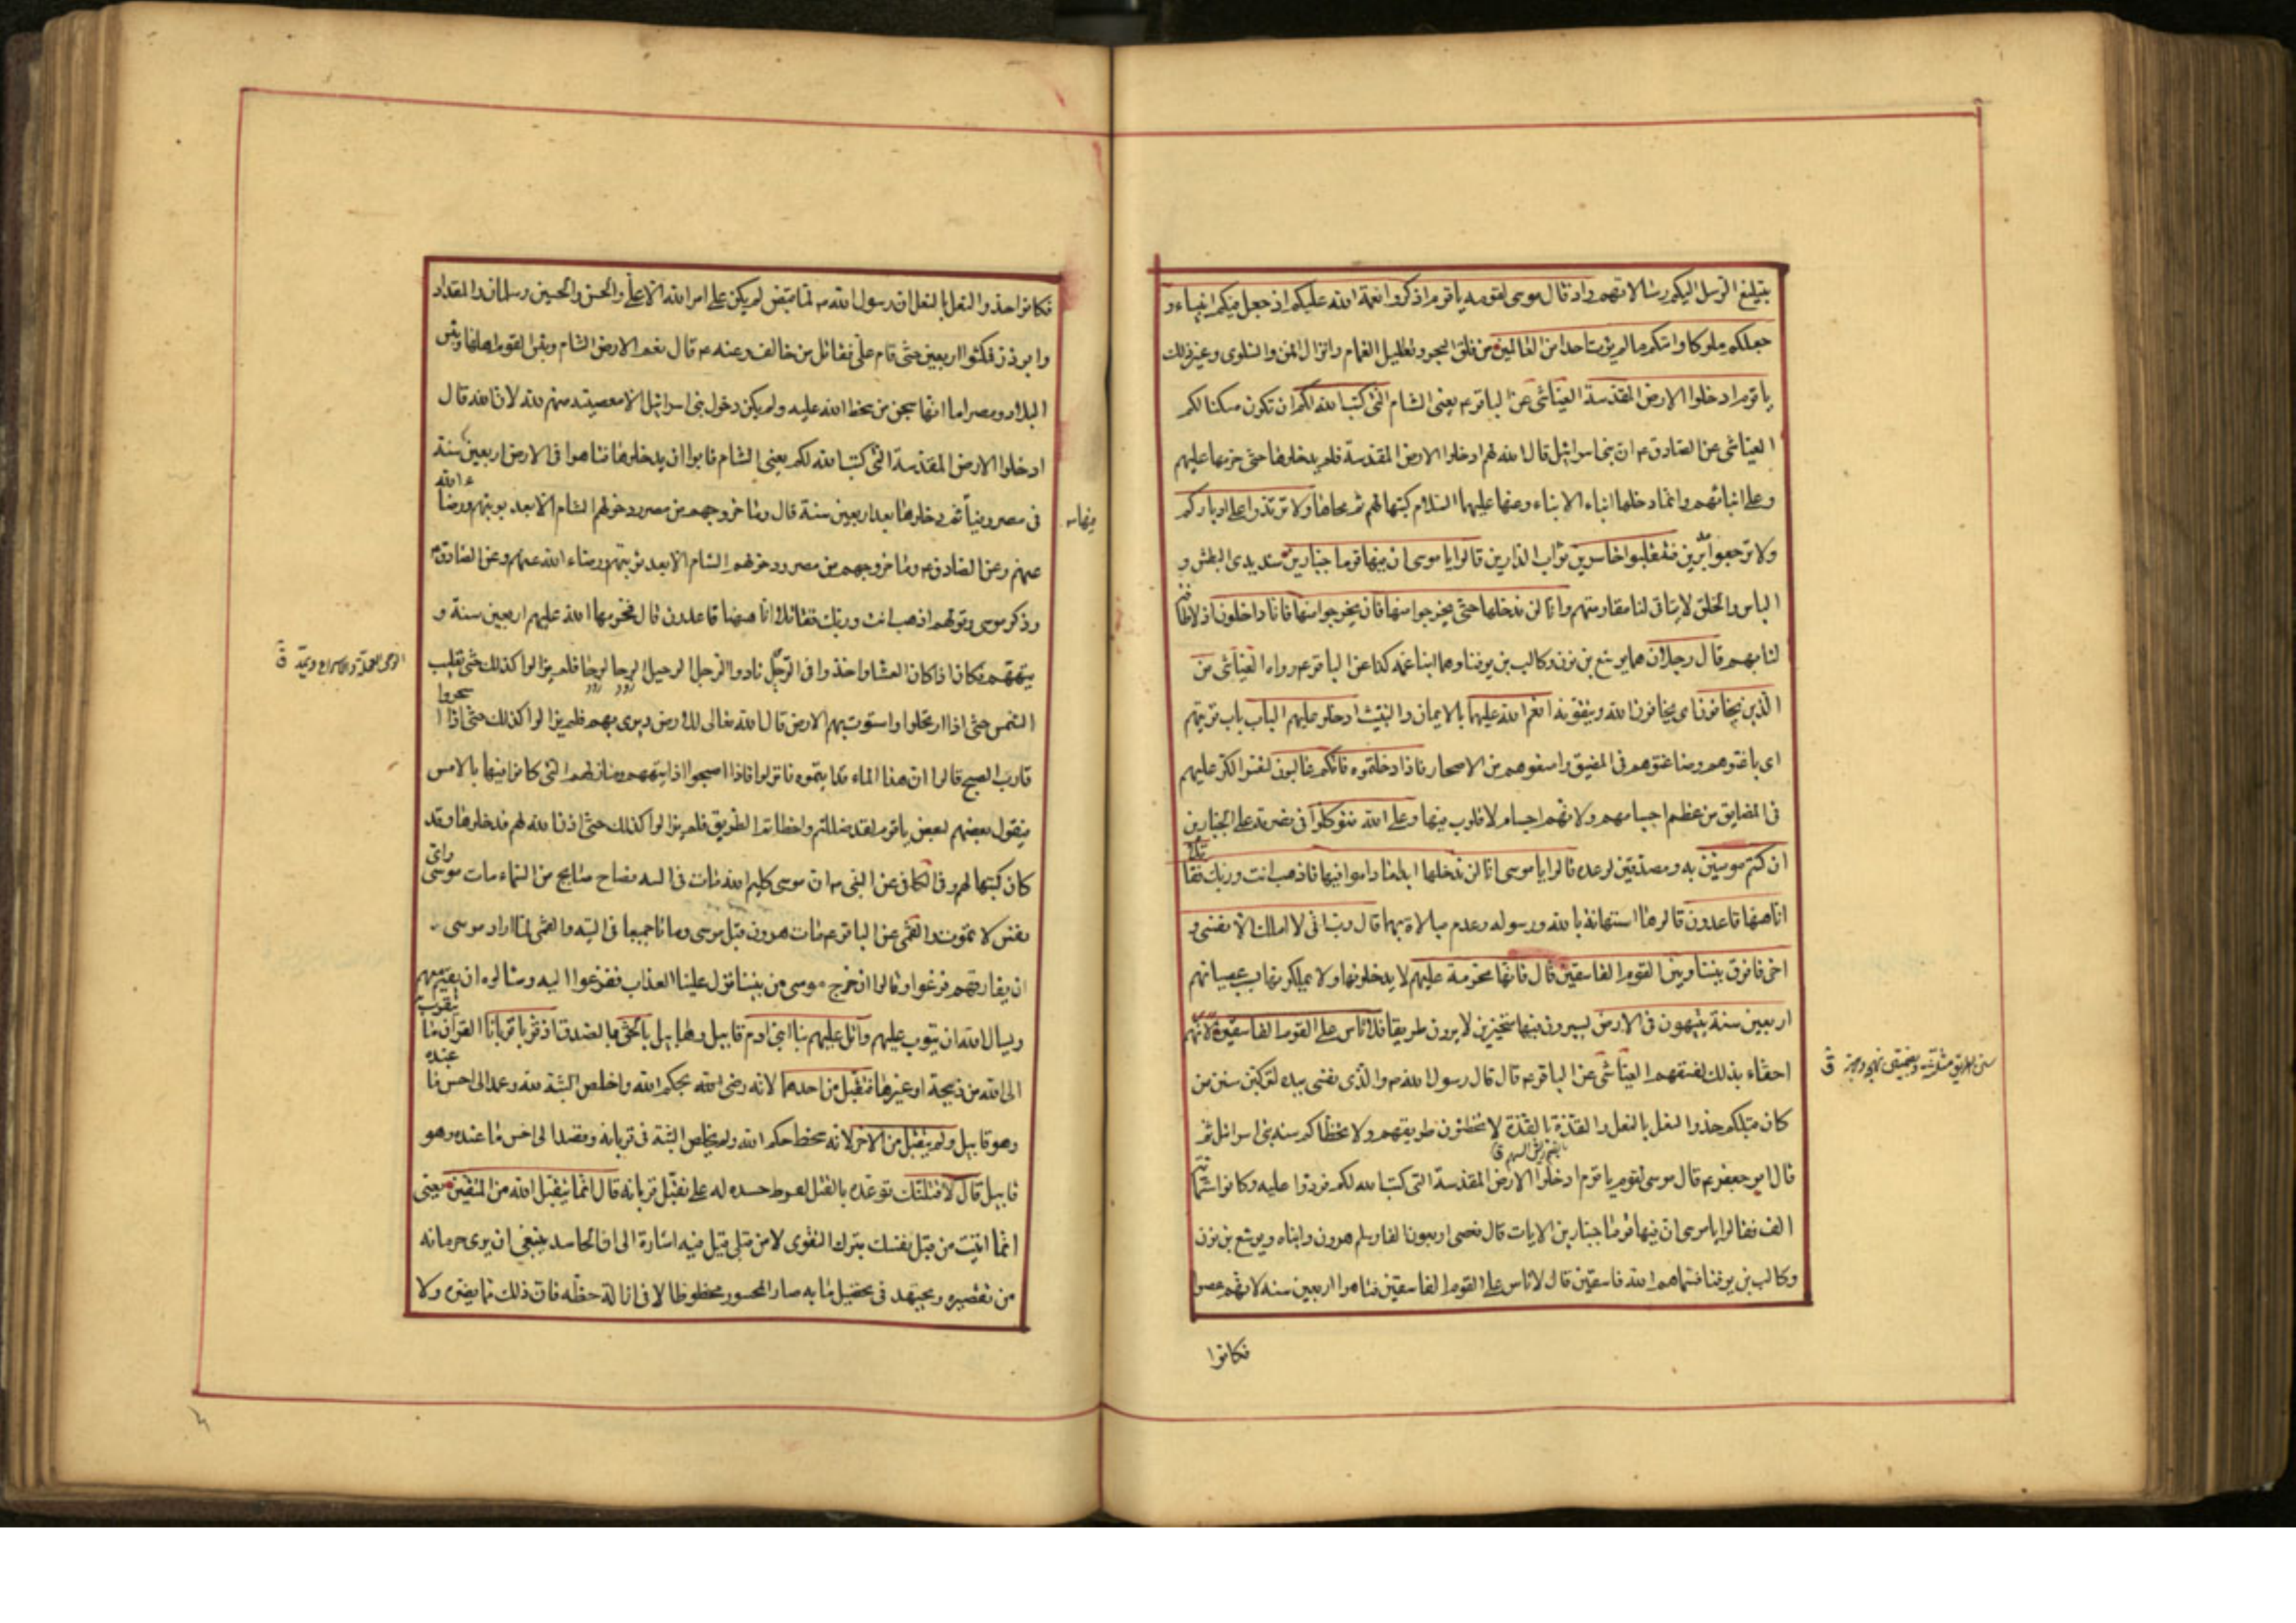 بتبليغ الرسل اليكم رسالاتهم واذ قال موسى لقومه يا قوم اذكروا نعمة الله عليكم اذ جعل فيكم انبياء و
جعلكم ملوكا واتيكم ما لم يؤت احدا من العالمين من فلق البحر وتظليل الغمام وانزال المن والسلوى وغير ذلك
يا قوم ادخلوا الارض المقدسة العياشى عن الباقر ع يعنى الشام التى كتب الله لكم ان تكون مسكنا لكم
العياشى عن الصادق ع ان بنى اسرائيل قال الله لهم ادخلوا الارض المقدسة فلم يدخلوها حتى حرمها عليهم
وعلى ابنائهم وانما دخلها ابناء الابناء وعنهما عليهما السلام كتبها لهم ثم محاها ولا ترتدوا على ادباركم
ولا ترجعوا مدبرين فتنقلبوا خاسرين ثواب الدارين قالوا يا موسى ان فيها قوما جبارين شديدى البطش و
الباس والخلق لا يتاتى لنا مقاومتهم وانا لن ندخلها حتى يخرجوا منها فان يخرجوا منها فانا داخلون اذ لا طاقة
لنا بهم قال رجلان هما يوشع بن نون وكالب بن يوفنا وهما ابنا عمه كذا عن الباقر ع رواه العياشى من
الذين يخافون اى يخافون الله ويتقونه انعم الله عليهما بالايمان والتثبت ادخلوا عليهم الباب باب قريتهم
اى باغتوهم وضاغطوهم فى المضيق وامنعوهم من الاصحار فاذا دخلتموه فانكم غالبون لتعسر الكر عليهم
فى المضايق من عظم اجسامهم ولانهم اجسام لا قلوب فيها وعلى الله فتوكلوا فى نصرته على الجبارين
ان كنتم مومنين به ومصدقين لوعده قالوا يا موسى انا لن ندخلها ابدا ما داموا فيها فاذهب انت وربك فقاتلا
انا ههنا قاعدون قالوها استهانة بالله ورسوله وعدم مبالاة بهما قال رب انى لا املك الا نفسى و
اخى فافرق بيننا وبين القوم الفاسقين قال فانها محرمة عليهم لا يدخلونها ولا يملكونها بسبب عصيانهم
اربعين سنة يتيهون فى الارض يسيرون فيها متحيزين لا يرون طريقا فلا تاس على القوم الفاسقين لانهم
احقاء بذلك لفسقهم العياشى عن الباقر ع قال قال رسول الله ص والذى نفسى بيده لتركبن سنن من
كان قبلكم حذو النعل بالنعل والقذة بالقذة لا تخطئون طريقهم ولا يخطأكم سنة بنى اسرائيل ثم
قال ابو جعفر ع قال موسى لقومه يا قوم ادخلوا الارض المقدسة التى كتب الله لكم فردوا عليه وكانوا ستمائة
الف فقالوا يا موسى ان فيها قوما جبارين الايات قال فعصى اربعون الفا وسلم هرون وابناه ويوشع بن نون
وكالب بن يوفنا فسماهم الله فاسقين قال لا تاس على القوم الفاسقين فتاهوا اربعين سنه لانهم عصوا
فكانوا
فكانوا حذو النعل بالنعل ان رسول الله ص لما قبض لم يكن على امر الله الا على والحسن والحسين وسلمان والمقداد
وابو ذر فمكثوا اربعين حتى قام على فقاتل من خالفه وعنه ع قال نعم الارض الشام وبئس القوم اهلها وبئس
البلاد مصر اما انها سجن من سخط الله عليه ولم يكن دخول بنى اسرائيل الا معصية منهم لله لان الله قال
ادخلوا الارض المقدسة التى كتب الله لكم يعنى الشام فابوا ان يدخلوها فتاهوا فى الارض اربعين سنة
فى مصر وفيافيها ثم دخلوها بعد اربعين سنة قال وما خروجهم من مصر ودخولهم الشام الا بعد توبتهم ورضاء الله
عنهم وعن الصادق ع وما خروجهم من مصر ودخولهم الشام الا بعد توبتهم ورضاء الله عنهم وعن الصادق ع
وذكر موسى وقولهم اذهب انت وربك فقاتلا انا ههنا قاعدون قال فحرمها الله عليهم اربعين سنة و
تيههم فكان اذا كان العشا واخذوا فى الرحيل نادوا الرحيل الرحيل الوحا الوحا فلم يزالوا كذلك حتى تغيب
الشمس حتى اذا ارتحلوا واستوت بهم الارض قال الله تعالى للارض ديرى بهم فلم يزالوا كذلك حتى اذا اسحروا
قارب الصبح قالوا ان هذا الماء قد اتيتموه فانزلوا فاذا اصبحوا اذا تيههم ومنازلهم التى كانوا فيها بالامس
فيقول بعضهم لبعض يا قوم لقد ضللتم واخطاتم الطريق فلم يزالوا كذلك حتى اذن الله لهم فدخلوها وقد
كان كتبها لهم وفى الكافى عن النبى ص ان موسى كليم الله مات فى التيه فصاح صايح من السماء مات موسى واى
نفس لا تموت والقمى عن الباقر ع مات هرون قبل موسى وماتا جميعا فى التيه والقمى لما اراد موسى
ان يفارقهم فزعوا وقالوا ان خرج موسى من بيننا نزل علينا العذاب ففزعوا اليه وسالوه ان يقيم معهم
ويسال الله ان يتوب عليهم واتل عليهم نبا ابنى ادم قابيل وهابيل بالحق بالصدق اذ قربا قربانا القربان ما يتقرب
الى الله من ذبيحة او غيرها فتقبل من احدهما لانه رضى الله بحكم الله واخلص النية لله وعمد الى احسن ما عنده
وهو قابيل ولم يتقبل من الاخر لانه سخط حكم الله ولم يخلص النية فى قربانه وقصد الى اخس ما عنده وهو
قابيل قال لاقتلنك توعده بالقتل لفرط حسده له على تقبل قربانه قال انما يتقبل الله من المتقين يعنى
انما اتيت من قبل نفسك بترك التقوى لا من قبلى قيل فيه اشارة الى ان الحاسد ينبغى ان يرى حرمانه
من تقصيره ويجتهد فى تحصيل ما به صار المحسود محظوظا لا فى ازالة حظه فان ذلك مما يضره ولا